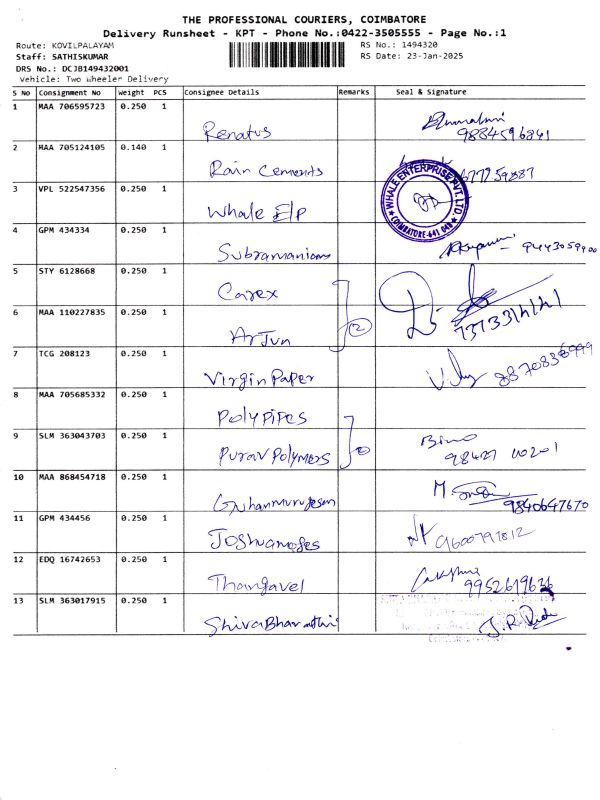 THE PROFESSIONAL COURIERS, COIMBATORE
Delivery Runsheet - KPT - Phone No.:0422-3505555 - Page No.:1
Route: KOVILPALAYAM
RS No.: 1494320
Staff: SATHISKUMAR
RS Date: 23-Jan-2025
DRS No.: DCJB149432001
Vehicle: Two Wheeler Delivery
S No Consignment No Weight PCS Consignee Details Remarks Seal & Signature
1 MAA 706595723 0.250 1
Renatus 9884596841
2 MAA 705124105 0.140 1
Rain Cements
WHALE ENTERPRISE PVT. LTD.
COIMBATORE-641 048
3 VPL 522547356 0.250 1
Whale E/P
4 GPM 434334 0.250 1
Subramaniam 9443059900
5 STY 6128668 0.250 1
Carex
6 MAA 110227835 0.250 1
Arjun 2
7 TCG 208123 0.250 1
Virgin Paper
8 MAA 705685332 0.250 1
Polypipes
9 SLM 363043703 0.250 1
Purav Polymers 98427 00201
10 MAA 868454718 0.250 1
Guhanmurugesan 9840647670
11 GPM 434456 0.250 1
Joshuamoses 9600797812
12 EDQ 16742653 0.250 1
Thangavel
13 SLM 363017915 0.250 1
ShivaBharathi